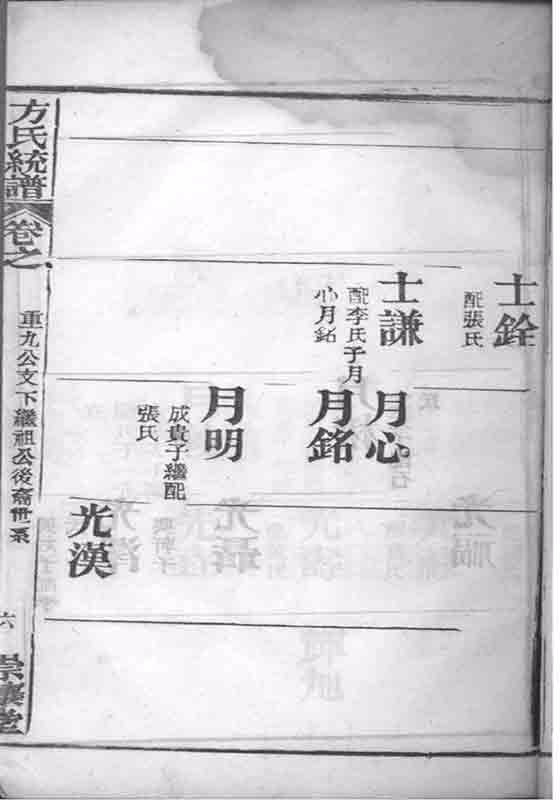 士銓
配張氏
士謙
配李氏子月
心月銘
月心
月銘
月明
成貴子繼配
張氏
光漢
方氏統譜
卷之
重九公文下繼祖公後裔世系
六
崇讓堂